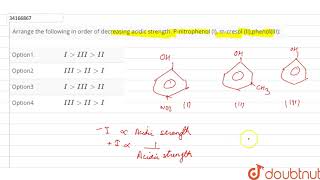 34166867
Arrange the following in order of decreasing acidic strength. P-nitrophenol (I), m-cresol (II), phenol(III):
Option1. I > III > II
Option2. I > II > III
Option3. III > I > II
Option4. III > II > I
OH
OH
OH
NO2
CH3
(I)
(II)
(III)
- I ∝ Acidic strength
+ I ∝ 1
Acidic strength
doubtnut